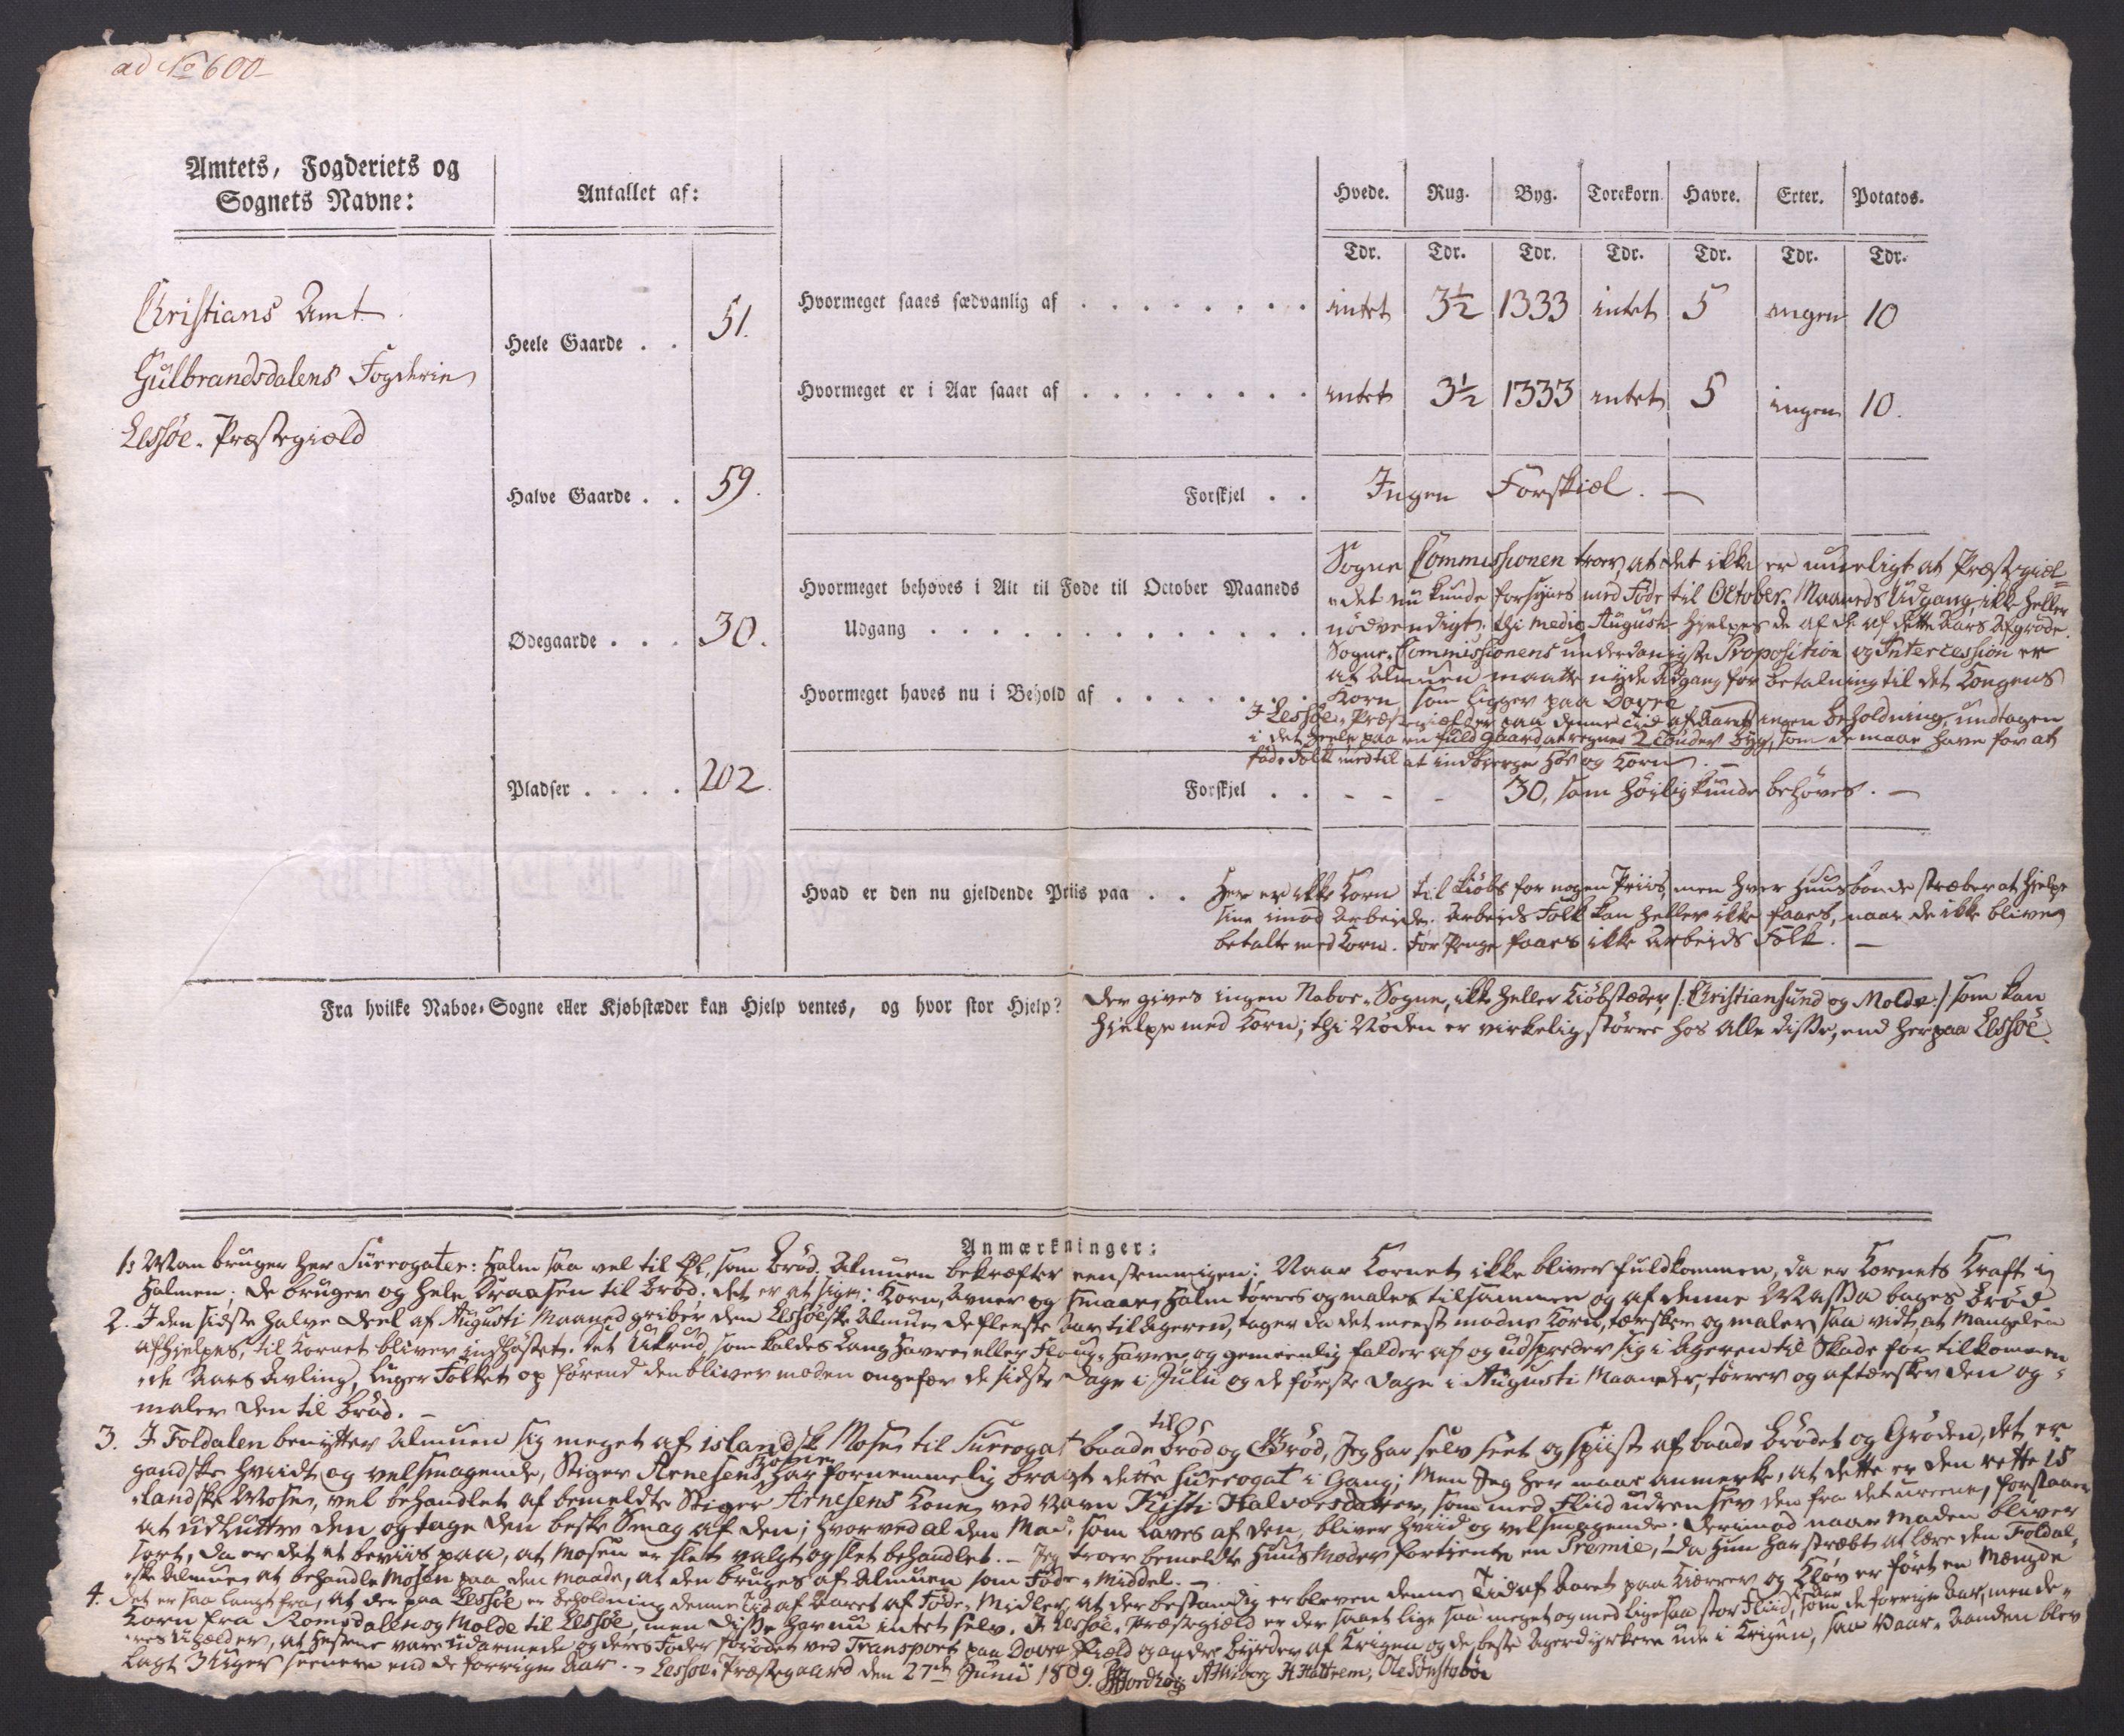 ad No 600
Amtets, Fogderiets og
Sognets Navne:
Antallet af:
Hvede. Rug. Byg. Torekorn. Havre. Erter. Potatos.
Tdr. Tdr. Tdr. Tdr. Tdr. Tdr. Tdr.
Christians Amt.
Gulbrandsdalens Fogderie
Lessøe. Præstegiæld
Heele Gaarde . . 51.
Halve Gaarde . . 59.
Ødegaarde . . . 30.
Pladser . . . . 202.
Hvormeget saaes sædvanlig af . . . . . . . . intet 3½ 1333 intet 5 ingen 10
Hvormeget er i Aar saaet af . . . . . . . . intet 3½ 1333 intet 5 ingen 10.
Forskjel . . Ingen Forskiæl. —
Hvormeget behøves i Alt til Føde til October Maaneds
Udgang . . . . . . . . . . . . .
Sogne Commissionen troer at det ikke er mueligt at Præstegiæl=
=det nu kunde forsynes med Føde til October. Maaneds Udgang, ikke heller
nødvendigt; thi medio Augusti hjelpes de af de af dette Aars Afgrøde.
Sogne-Commissionens underdanigste Proposition og Intercession er
at Almuen maatte nyde Adgang for betalning til det Kongens
Korn, som ligger paa Dovre
Hvormeget haves nu i Behold af . . . . . . .
I Lessøe-Præstegiæld er paa denne Tid af Aaret ingen beholdning, undtagen
i det heele paa en fuld Gaard at regnes 2 Tønder Byg, som de maae have for at
føde Folk med til at indbierge Høe og Korn. —
Forskjel . . - - - 30, som høilig kunde behøves. —
Hvad er den nu gjeldende Priis paa . .
Her er ikke Korn til Kiøbs for nogen Priis, men hver Huusbonde stræber at hjelpe
sine imod Arbeide. Arbeids Folk kan heller ikke faaes, naar de ikke bliver
betalte med Korn. For Penge faaes ikke Arbeids Folk. —
Fra hvilke Naboe-Sogne eller Kjøbstæder kan Hjelp ventes, og hvor stor Hjelp?
Der gives ingen Naboe-Sogne, ikke heller Kiøbstæder, /: Christiansund og Molde :/ som kan
hjelpe med Korn; thi Nøden er virkelig større hos alle disse, end her paa Lessøe.
Anmærkninger:
1: Man bruger her Surrogater: Halm saa vel til Øl, som Brød. Almuen bekræfter eenstemmigen: Naar Kornet ikke bliver fuldkommen, da er Kornets Kraft i
Halmen; de bruger og hele Draasen til Brød: det er at sige: Korn, Avner og smaae Halm tørres og males tilsammen og af denne Massa bages Brød
2. I den sidste halve Deel af Augusti Maaned griber den Lessøeske Almue de fleeste Aar til Ageren, tager da det meest modne Korn, tørsker og maler saa vidt, at Mangelen
afhjelpes, til Kornet bliver indhøstet. Det Ukrud, som kaldes Lang Havre eller Floug-Havre og gemeenlig falder af og udspreder sig i Ageren til Skade for tilkommen
=de Aars Avling, luger Folket op førend den bliver moden ongefær de sidste Dage i Julii og de første Dage i Augusti Maaneder, tørrer og aftærsker den og
maler den til Brød. —
3. I Foldalen benytter Almuen sig meget af islandsk Mose til Surrogat baade til Brød og Grød, Jeg har selv seet og spiist af baade Brødet og Grøden, det er
gandske hviidt og velsmagende, Stiger Arnesens Kone har fornemmelig bragt dette Surrogat i Gang; Men Jeg her maae anmerke, at dette er den rette is
=landske Mose, vel behandlet af bemeldte Stiger Arnesens Kone ved Navn Kisti Halvorsdatter, som med Fliid udrensker den fra det ureene, forstaaer
at udlutte den og tage den beske Smag af den; hvorved al den Mad, som laves af den, bliver hviid og velsmagende. Derimod naar Maden bliver
sort, da er det et beviis paa, at Mosen er slet valgt og slet behandlet. — Jeg troer bemeldte Huus Moder fortiente en Premie, da hun har stræbt at lære den Foldal=
=ske Almue, at behandle Mosen paa den Maade, at den bruges af Almuen som Føde-Middel. —
4. Det er saa langt fra, at der paa Lessøe er beholdning denne Tid af Aaret af Føde-Midler, at der bestandig er bleven denne Tid af Aaret paa Kiærrer og Kløv er ført en Mængde
Korn fra Romsdalen og Molde til Lessøe, men disse har nu intet selv. I Lessøe-Præstegiæld er der saaet lige saa meget og med ligesaa stor Fliid i Aar som de forrige Aar, men de=
=res Uheld er, at Hestene vare udarmede og deres Foder forødet ved Transport paa Dovre Field og andre Byrder af Krigen og de beste Agerdyrkere ude i Krigen, saa Vaar-Aanden blev
lagt 3 Uger seenere end de forrige Aar. — Lessøe-Præstegaard den 27de Junii 1809. Nordhøy A Wiborg H Hattrem, Ole Sønstebøe